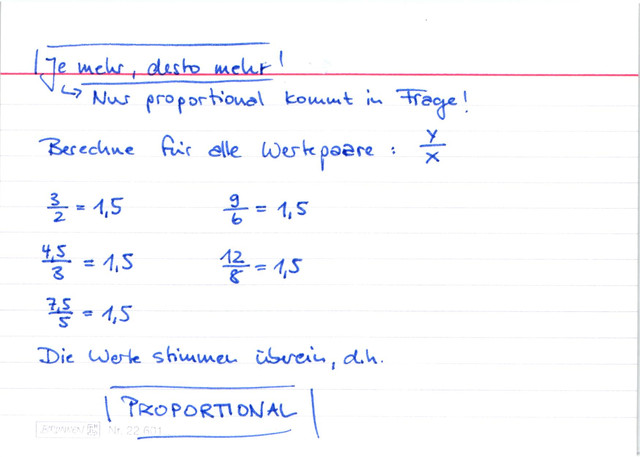 Je mehr, desto mehr!
↳ Nur proportional kommt in Frage!
Berechne für alle Wertepaare: y/x
3/2 = 1,5 9/6 = 1,5
4,5/3 = 1,5 12/8 = 1,5
7,5/5 = 1,5
Die Werte stimmen überein, d.h.
PROPORTIONAL
Nr. 22 601